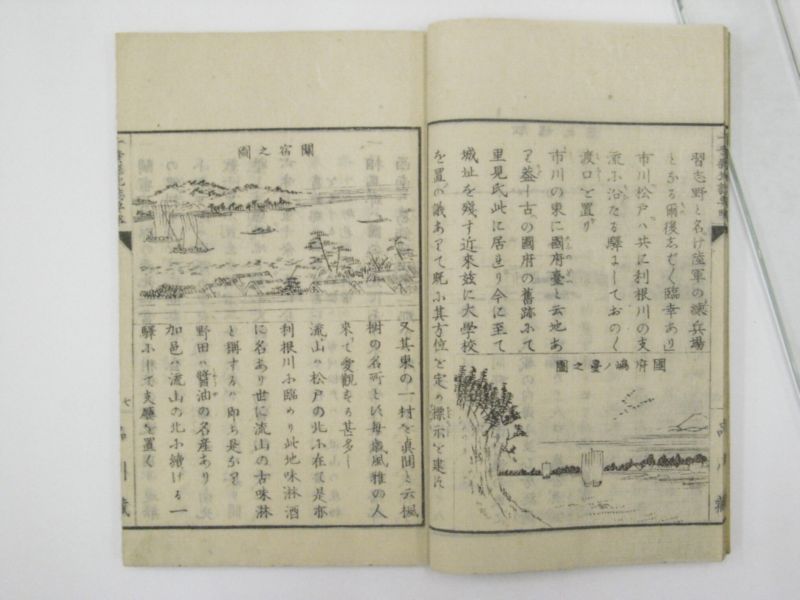 習志野と名け陸軍の練兵場
となる爾後志ばく臨幸あり
市川松戸ハ共に利根川の支
流ふ沿たる驛にしておのく
渡口を置り
市川の東に國府臺と云地あ
り葢し古の國府の舊跡ふて
里見氏此に居より今に至て
城址を殘す近來茲に大學校
を置の議ありて既ふ其方位を定め標示を建た
國府嶋ノ臺之圖
又其東の一村を眞間と云楓
樹の名所とに毎歳風雅の人
來て愛觀する甚多し
流山ハ松戸の北ふ在て是亦
利根川ふ臨めり此地味淋酒
に名あり世に流山の古味淋
と稱するハ即ち是なり
野田ハ醬油の名産あり
加邑ハ流山の北ふ續ける一
驛ふして支廳を置く
關宿之圖
七